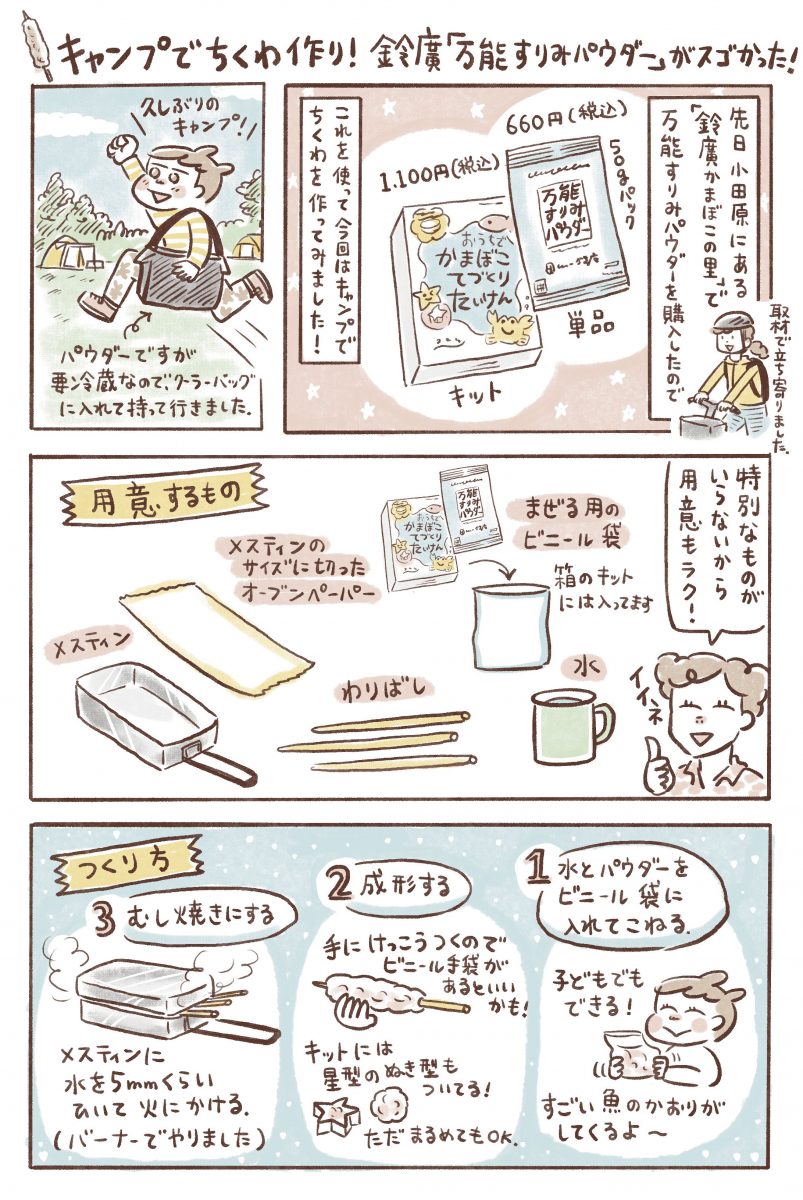 キャンプでちくわ作り！鈴廣「万能すりみパウダー」がスゴかった！
先日小田原にある
「鈴廣かまぼこの里」で
万能すりみパウダーを購入したので
取材で立ち寄りました。
660円(税込)
50gパック
万能
すりみ
パウダー
単品
1.100円(税込)
おうちで
かまぼこ
てづくり
たいけん
キット
これを使って今回はキャンプで
ちくわを作ってみました！
久しぶりの
キャンプ！
パウダーですが
要冷蔵なのでクーラーバッグ
に入れて持って行きました.
特別なものが
いらないから
用意もラク！
イイネ
用意するもの
万能
すりみ
パウダー
おうちで
かまぼこ
てづくり
たいけん
まぜる用の
ビニール袋
箱のキット
には入ってます
メスティンの
サイズに切った
オーブンペーパー
メスティン
わりばし
水
つくり方
1 水とパウダーを
ビニール袋に
入れてこねる.
子どもでも
できる！
すごい魚のかおりが
してくるよ〜
2 成形する
手にけっこうつくので
ビニール手袋が
あるといい
かも！
キットには
星型のぬき型も
ついてる！
ただまるめてもOK.
3 むし焼きにする
メスティンに
水を5mmくらい
ひいて火にかける.
(バーナーでやりました)